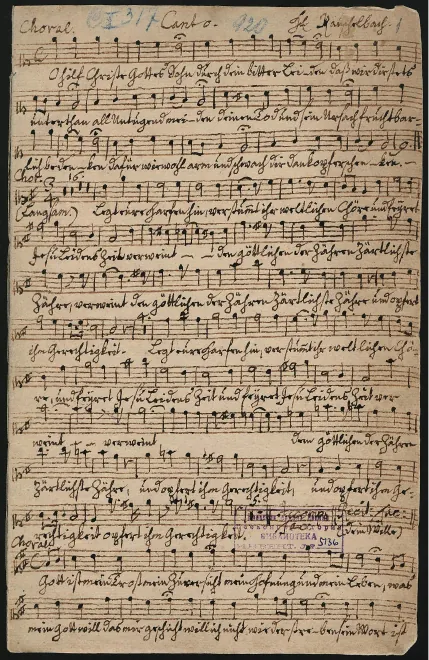 Choral. Canto.
O hilf Christe Gottes Sohn durch dein bitter Leiden daß wir dir stets
unterthan all Untugend meiden deinen Tod und sein Ursach fruchtbar-
lich bedenken dafür wiewohl arm und schwach dir Dankopfer schen-ken.
Chor. 16
(Langsam.) Legt eure Harfen hin, verstummt ihr weltlichen Chöre und feyret
Jesu Leidens Zeit verweint - - den göttlichen der Zähren Zärtlichste
Zähre, verweint den göttlichen der Zähren Zärtlichste Zähre und opfert
ihm Gerechtigkeit. Legt eure Harfen hin, verstummt ihr weltlichen Chö-
re, und feyret Jesu Leidens Zeit und feyret Jesu Leidens Zeit ver
weint - - verweint dem göttlichen der Zähren
Zärtlichste Zähre, und opfert ihm Gerechtigkeit, und opfert ihm Ge-
rechtigkeit opfert ihm Gerechtigkeit.
Recit. tac.
(dein Wille)
БИБЛИОТЕКА
5136
Choral
Gott ist mein Trost mein Zuversicht mein Hofnung und mein Leben, was
mein Gott will das mir geschicht will ich nicht wiederstre-ben sein Wort ist